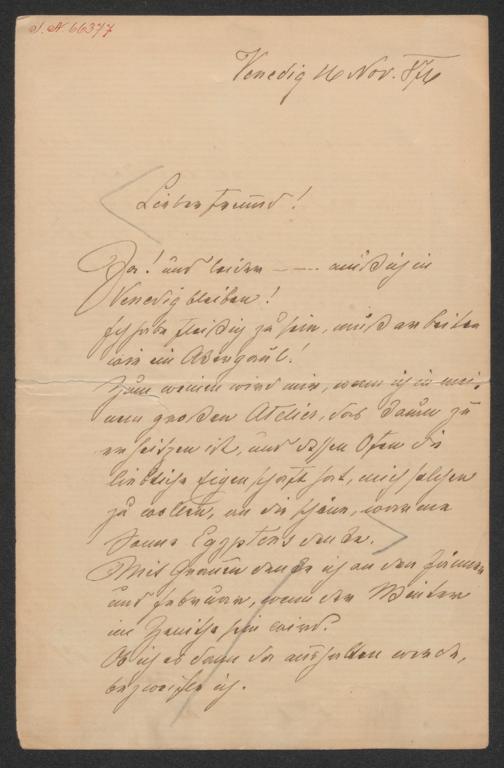 J. N. 66377
Venedig 16 Nov. 876
Lieber Freund!
Ja! und leider — — muß ich in
Venedig bleiben!
Ich habe fleißig zu sein, muß arbeiten
wie ein Ackergaul!
Zum weinen wird mir, wenn ich in mei-
nem großen Atelier, das kaum zu
erheitzen ist, und dessen Ofen die
liebliche Eigenschaft hat, mich selchen
zu wollen, an die schöne, warme
Sonne Egyptens denke.
Mit Grauen denke ich an den Jänner
und Februar, wenn der Winter
im Zenithe sein wird.
Ob ich es dann da aushalten werde,
bezweifle ich.